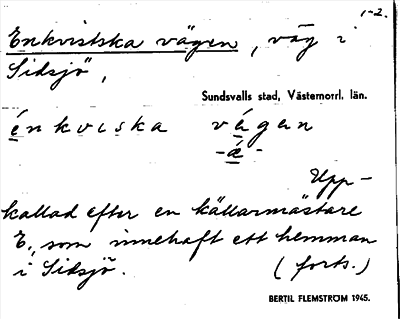 1-2.
Enkvistska vägen, väg i
Sidsjö,
Sundsvalls stad, Västernorrl. län.
énkviska vǽgen
-ǽ-
Upp-
kallad efter en källarmästare
E., som innehaft ett hemman
i Sidsjö. (forts.)
BERTIL FLEMSTRÖM 1945.